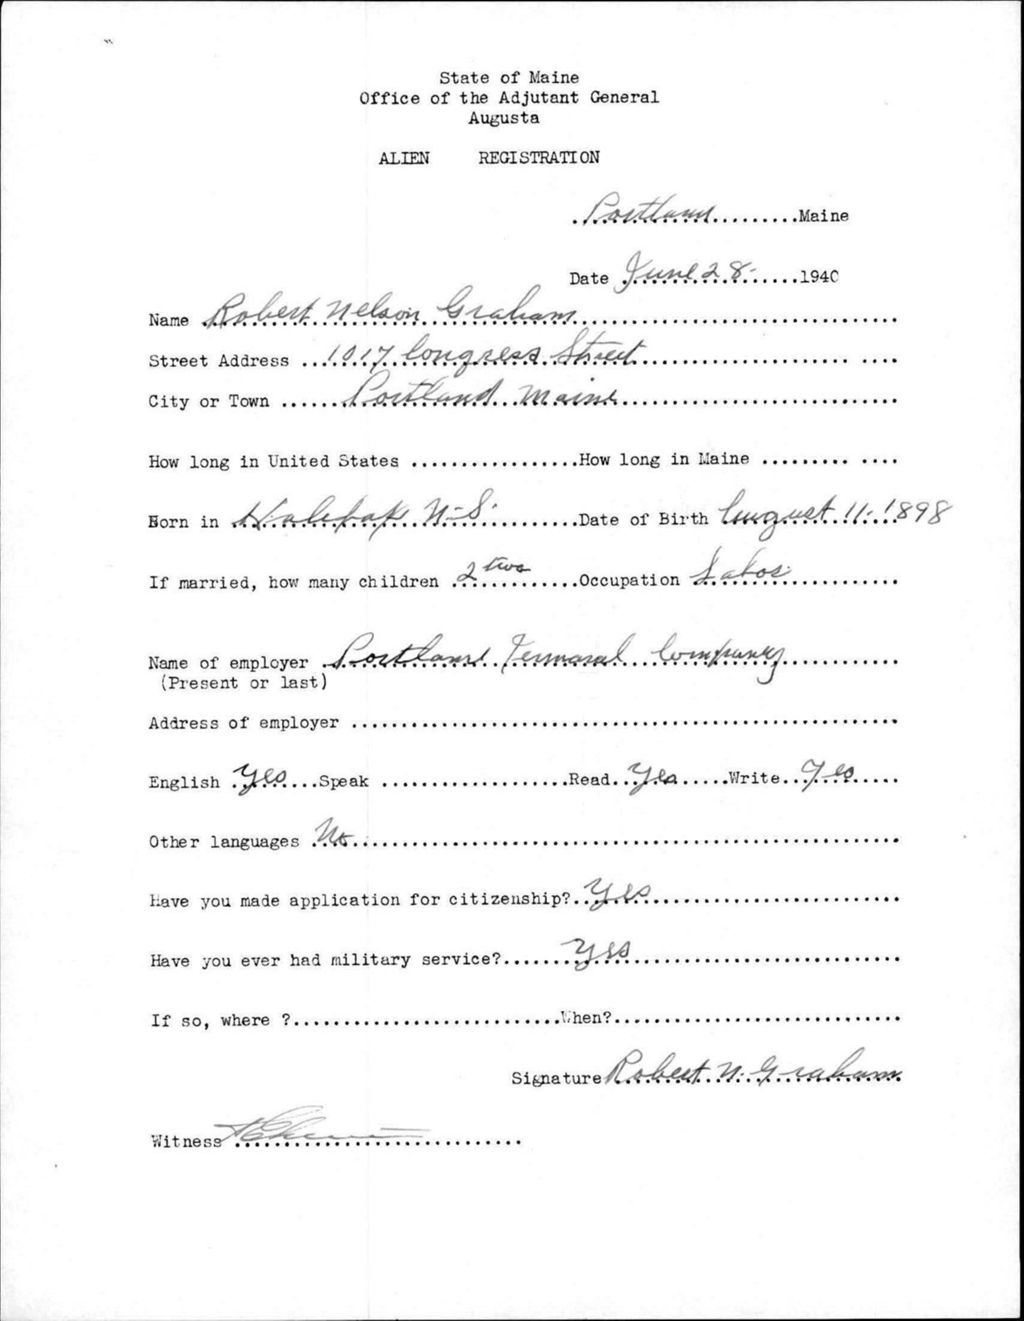 State of Maine
Office of the Adjutant General
Augusta
ALIEN REGISTRATION
Portland Maine
Date June 28 1940
Name Robert Nelson Graham
Street Address 1017 Congress Street
City or Town Portland Maine
How long in United States How long in Maine
Born in Halifax N.S. Date of Birth August 11-1898
If married, how many children 2 two Occupation Labor
Name of employer Portland Terminal Company
(Present or last)
Address of employer
English Yes Speak Read Yes Write Yes
Other languages No
Have you made application for citizenship? Yes
Have you ever had military service? Yes
If so, where ? When?
Signature Robert N. Graham
Witness